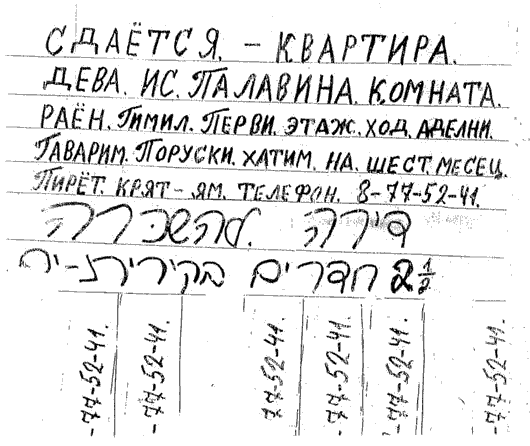 СДАЁТСЯ. – КВАРТИРА.
ДЕВА. ИС. ПАЛАВИНА. КОМНАТА.
РАЁН. ГИМИЛ. ПЕРВИ. ЭТАЖ. ХОД. АДЕЛНИ.
ГАВАРИМ. ПОРУСКИ. ХАТИМ. НА. ШЕСТ. МЕСЕЦ.
ПИРЁТ. КРЯТ – ЯМ. ТЕЛЕФОН. 8-77-52-41.
דירה להשכרה
2 1/2 חדרים בקירית-ים
-77-52-41.
-77-52-41.
77-52-41.
-77-52-41.
-77-52-41.
-77-52-41.